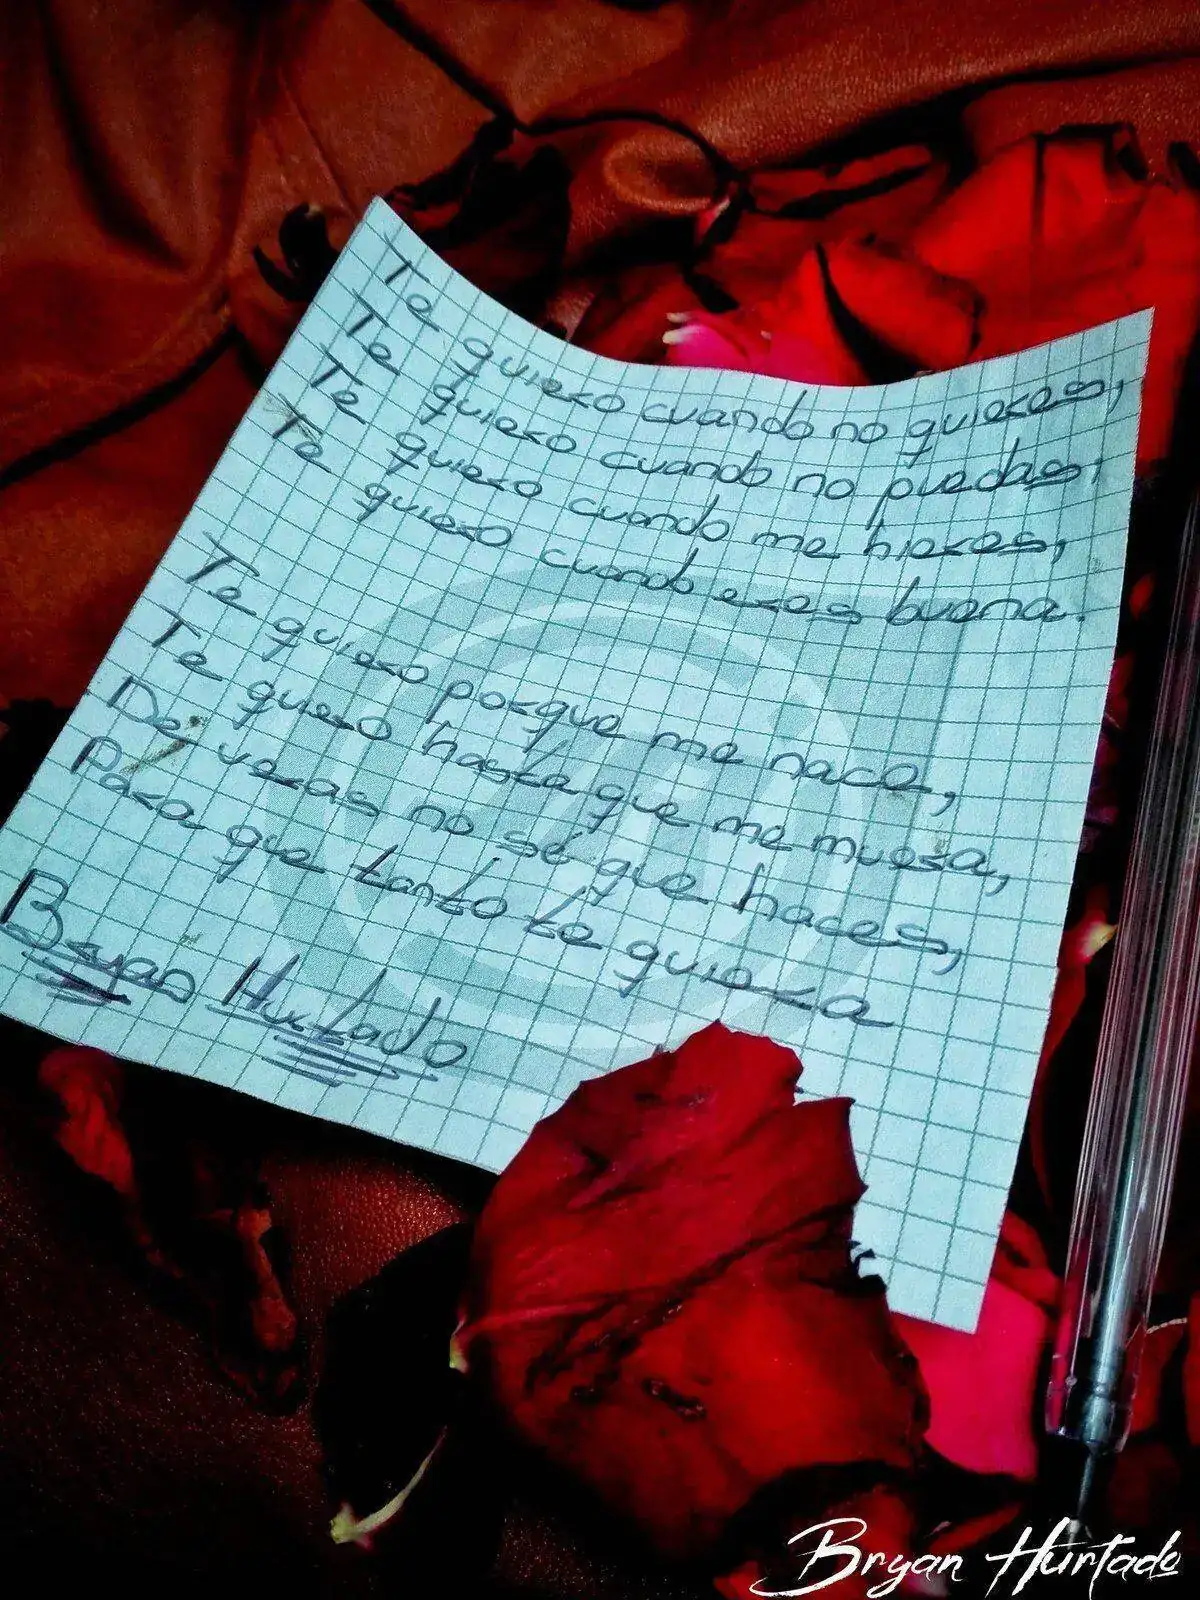 Te quiero cuando no quieres,
Te quiero cuando no puedas,
Te quiero cuando me hieres,
Te quiero cuando eres buena.
Te quiero porque me nace,
Te quiero hasta que me muera,
De veras no sé que haces,
Para que tanto te quiera
Bryan Hurtado
Bryan Hurtado